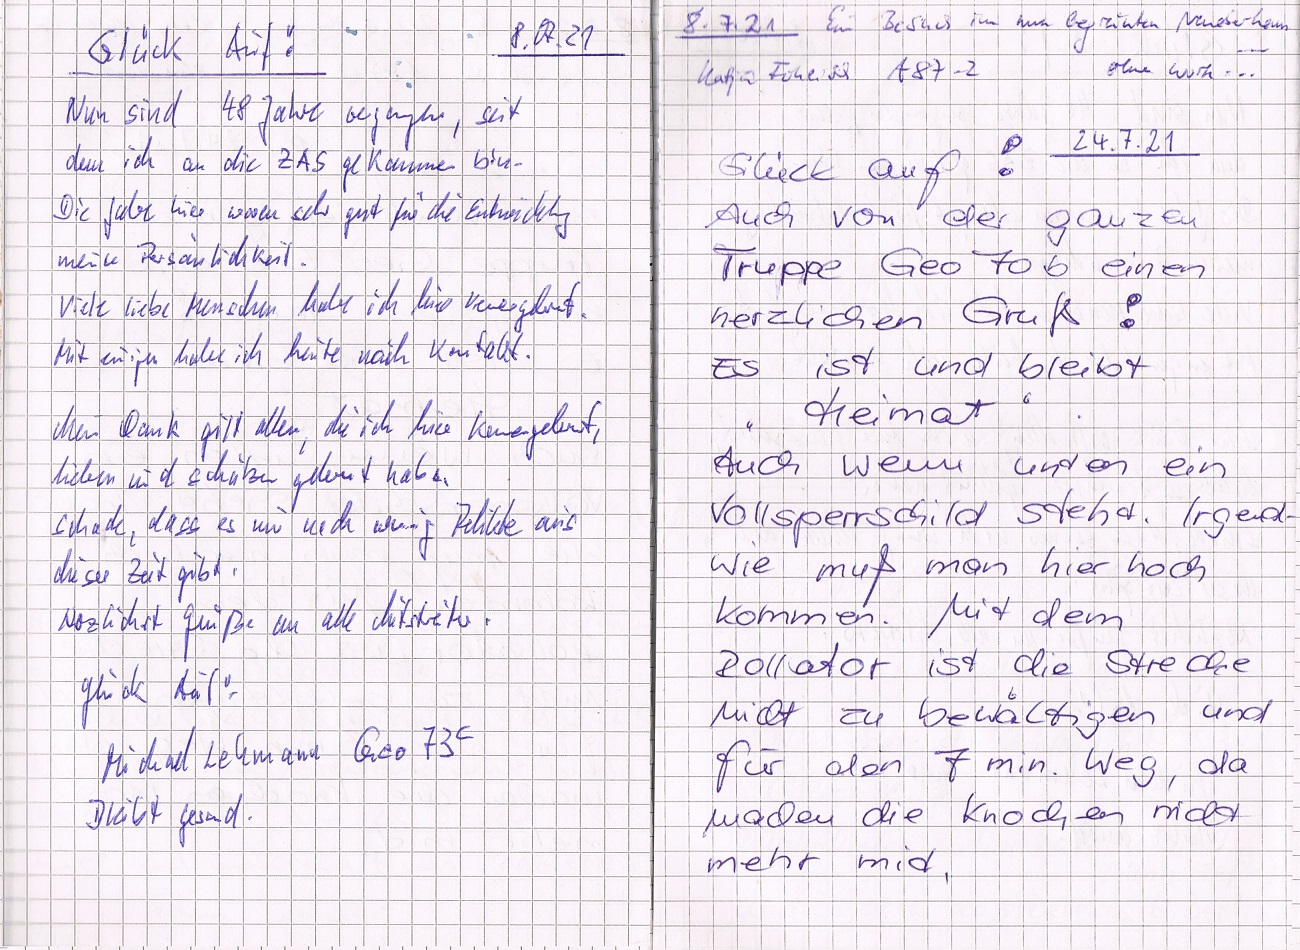 Glück Auf! 8.07.21
Nun sind 48 Jahre vergangen, seit
dem ich an die ZAS gekommen bin.
Die Jahre hier waren sehr gut für die Entwicklung
meine Persönlichkeit.
Viele liebe Menschen habe ich hier kennengelernt.
Mit einigen habe ich heute noch Kontakt.
Mein Dank gilt allen, die ich hier kennengelernt,
lieben und schätzen gelernt habe.
Schade, dass es nur noch wenig Relikte aus
dieser Zeit gibt.
Herzlichst Grüße an alle Mitstreiter.
Glück Auf!
Michael Lehmann Geo 73c
Bleibt gesund.
8.7.21 Ein Besuch im nun begrünten
Katja A87-2 ohne
Glück auf! 24.7.21
Auch von der ganzen
Truppe Geo 70 b einen
herzlichen Gruß!
Es ist und bleibt
"Heimat".
Auch wenn unten ein
Vollsperrschild steht. Irgend-
wie muß man hier hoch
kommen. Mit dem
Rollator ist die Strecke
nicht zu bewältigen und
für den 7 min. Weg, da
machen die Knochen nicht
mehr mit.